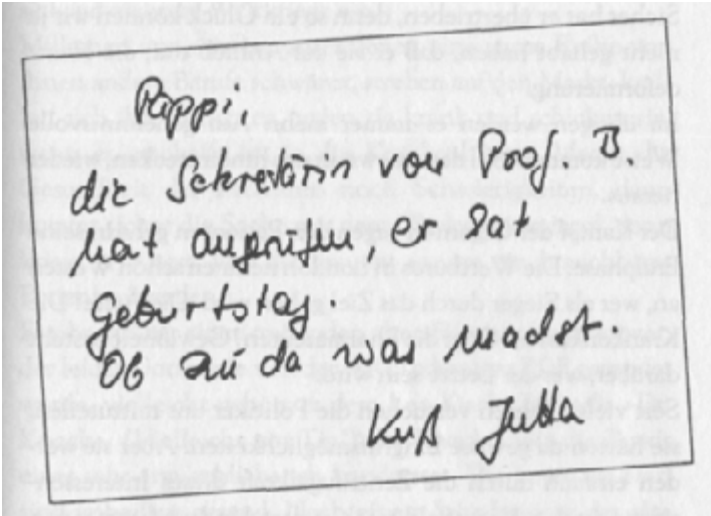 Pippi,
die Sekretärin von Prof. B
hat angerufen, er hat
Geburtstag.
Ob du da was machst.
Kuß Jutta